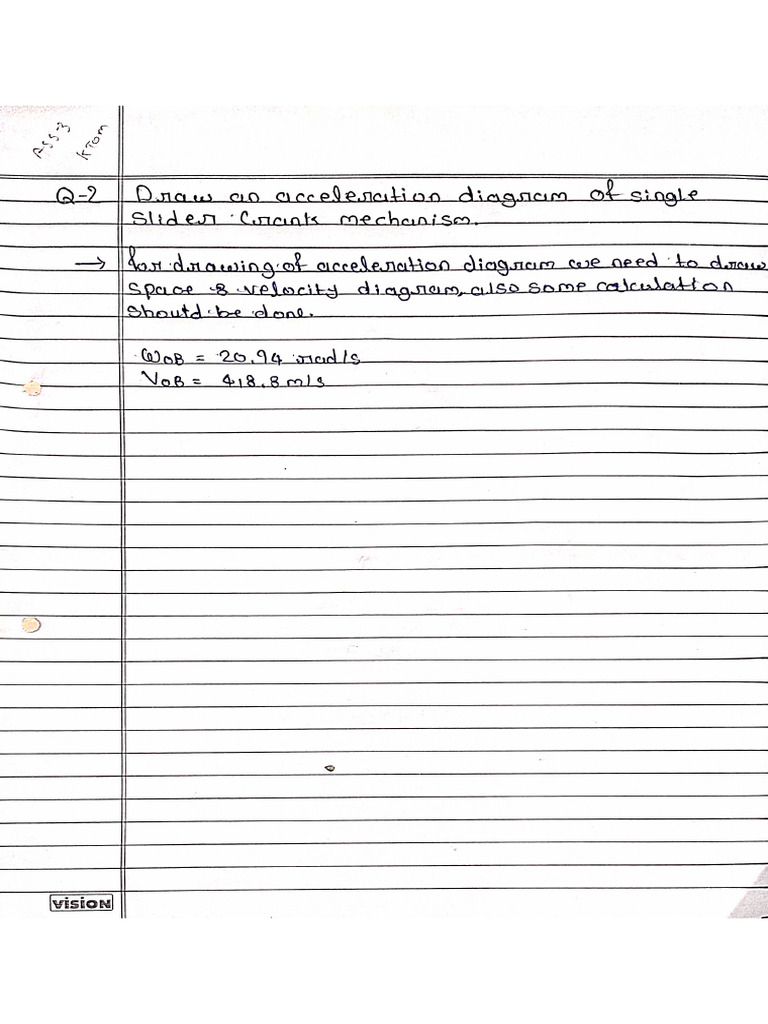 ASS-3
KTOM
Q-2 Draw an acceleration diagram of single
slider crank mechanism.
→ for drawing of acceleration diagram we need to draw
space & velocity diagram, also some calculation
should be done.
ωOB = 20.94 rad/s
VOB = 418.8 m/s
vision